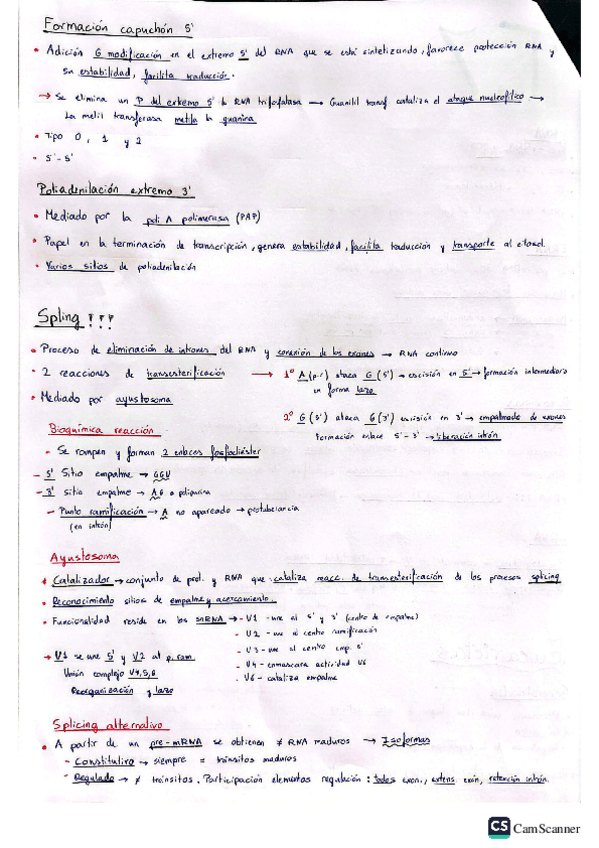 Formación capuchón 5'
• Adición G modificación en el extremo 5' del RNA que se está sintetizando, favorece protección RNA y
su estabilidad, facilita traducción.
→ Se elimina un P del extremo 5' b RNA trifosfatasa → Guanilil transf cataliza el ataque nucleofílico →
La metil transferasa metila la guanina
• Tipo 0, 1 y 2
• 5'-5'
Poliadenilación extremo 3'
• Mediado por la poli A polimerasa (PAP)
• Papel en la terminación de transcripción, genera estabilidad, facilita traducción y transporte al citosol.
• Varios sitios de poliadenilación
Spling
• Proceso de eliminación de intrones del RNA y conexión de los exones → RNA continuo
• 2 reacciones de transesterificación → 1º A (p.r) ataca G (5') → escisión en 5' → formación intermediario
en forma lazo
• Mediado por ayustosoma
2º G (5') ataca G (3') escisión en 3' → empalmado de exones
Formación enlace 5'-3' → liberación intrón
Bioquímica reacción
- Se rompen y forman 2 enlaces fosfodiéster
- 5' Sitio empalme → GGU
- 3' sitio empalme → AG
- Punto ramificación → A no apareado → protuberancia
(en intrón)
Ayustosoma
• Catalizador → conjunto de prot. y RNA que cataliza reacc. de transesterificación de los procesos splicing
• Reconocimiento sitios de empalme y acercamiento.
• Funcionalidad reside en los snRNA → - U1 - une al 5' y 3' (centro de empalme)
- U2 - une al centro ramificación
- U3 - une al centro emp. 5'
→ U1 se une 5' y U2 al p. ram.
- U4 - enmascara actividad U6
Unión complejo U4,5,6
- U6 - cataliza empalme
Reorganización y lazo
Splicing alternativo
• A partir de un pre-mRNA se obtienen ≠ RNA maduros → Isoformas
- Constitutivo → siempre = tránsitos maduros
- Regulado → ≠ tránsitos. Participación elementos regulación: todos exon., extens. exón, retención intrón.
CS CamScanner